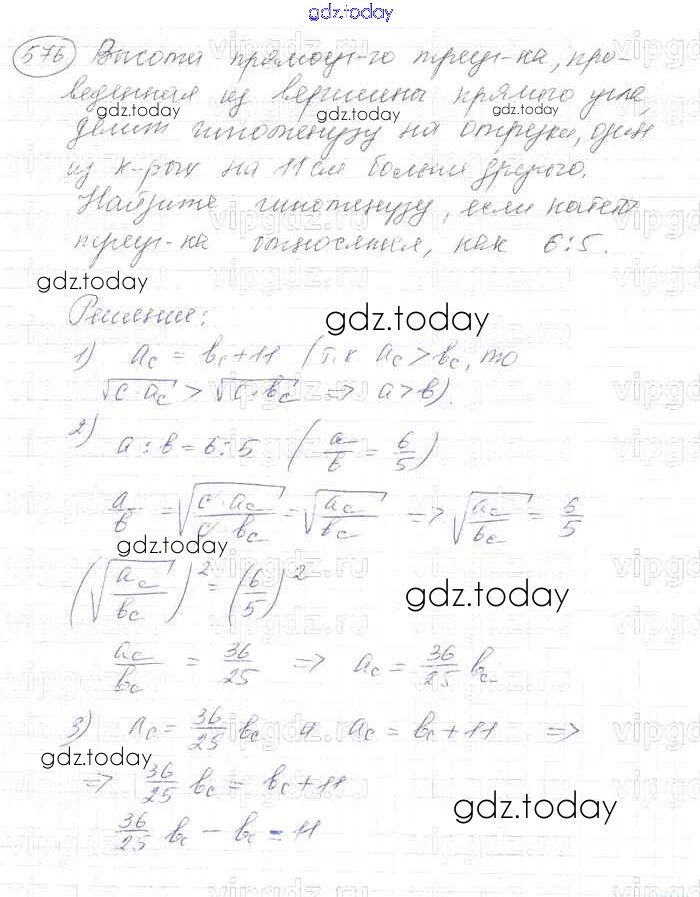 gdz.today
576 Высота прямоуг-го треуг-ка, про-
веденная из вершины прямого угла,
делит гипотенузу на отрезки, один
из к-рых на 11 см больше другого.
Найдите гипотенузу, если катеты
треуг-ка относятся, как 6:5.
gdz.today
Решение:
gdz.today
1) a_c = b_c + 11 (т.к a_c > b_c, то
√(c · a_c) > √(c · b_c) => a > b).
2) a : b = 6 : 5 (a/b = 6/5)
a/b = √((c · a_c)/(c · b_c)) = √(a_c/b_c) => √(a_c/b_c) = 6/5
gdz.today
(√(a_c/b_c))² = (6/5)²
gdz.today
a_c/b_c = 36/25 => a_c = 36/25 b_c
3) a_c = 36/25 b_c и a_c = b_c + 11 =>
gdz.today
=> 36/25 b_c = b_c + 11
gdz.today
36/25 b_c − b_c = 11